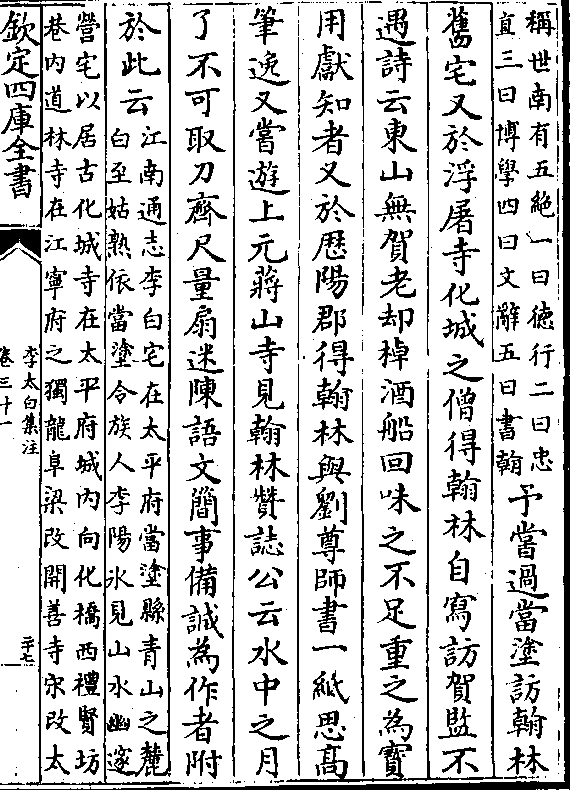 稱世南有五絕一曰德行二曰忠
直三曰博學四曰文辭五曰書翰
予嘗過當塗訪翰林
舊宅又於浮屠寺化城之僧得翰林自寫訪賀監不
遇詩云東山無賀老却棹酒船回味之不足重之為寶
用獻知者又於歴陽郡得翰林與劉尊師書一紙思髙
筆逸又嘗遊上元蔣山寺見翰林贊誌公云水中之月
了不可取刀齊尺量扇迷陳語文簡事備誠為作者附
於此云
江南通志李白宅在太平府當塗縣青山之麓
白至姑熟依當塗令族人李陽氷見山水幽邃
營宅以居古化城寺在太平府城内向化橋西禮賢坊
巷内道林寺在江寧府之獨龍阜梁改開善寺宋改太
欽定四庫全書
李太白集注
卷三十一
二十七